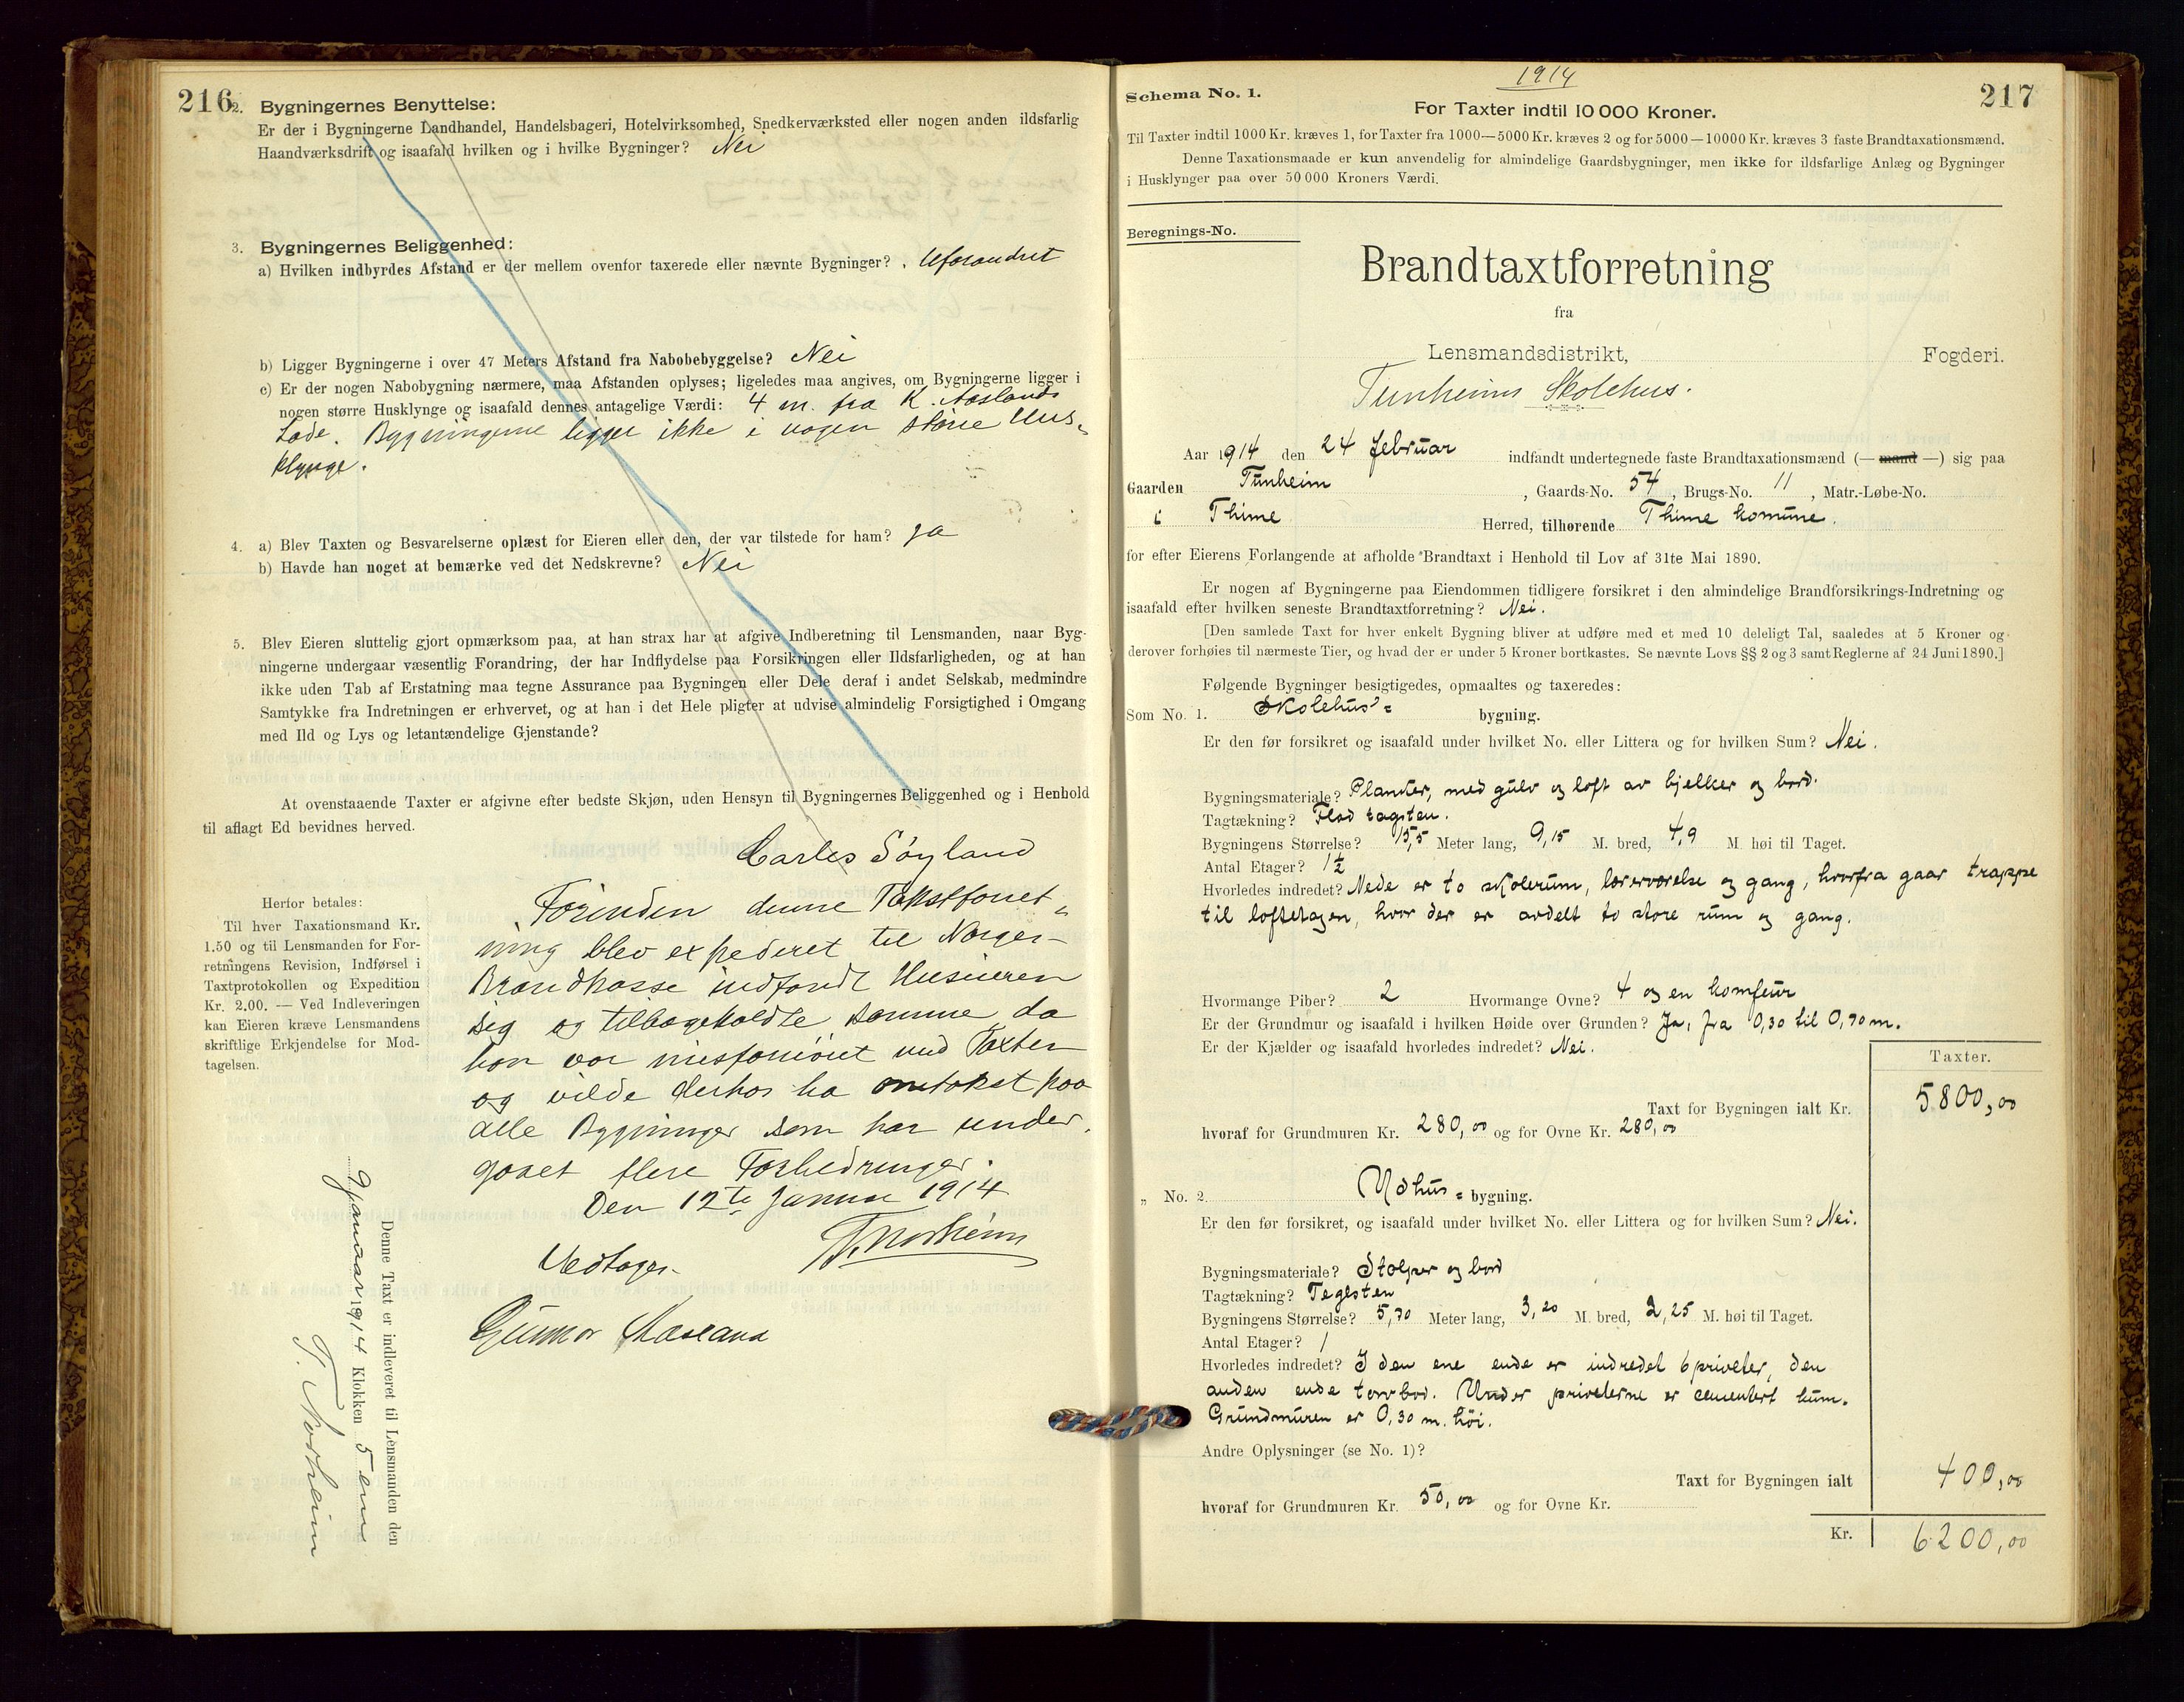 216
2. Bygningernes Benyttelse:
Er der i Bygningerne Landhandel, Handelsbageri, Hotelvirksomhed, Snedkerværksted eller nogen anden ildsfarlig
Haandværksdrift og isaafald hvilken og i hvilke Bygninger? Nei
3. Bygningernes Beliggenhed:
a) Hvilken indbyrdes Afstand er der mellem ovenfor taxerede eller nævnte Bygninger? Uforandret
b) Ligger Bygningerne i over 47 Meters Afstand fra Nabobebyggelse? Nei
c) Er der nogen Nabobygning nærmere, maa Afstanden oplyses; ligeledes maa angives, om Bygningerne ligger i
nogen større Husklynge og isaafald dennes antagelige Værdi: 4 m. fra K. Aaslands
Lade. Bygningerne ligger ikke i nogen større Hus-
klynge.
4. a) Blev Taxten og Besvarelserne oplæst for Eieren eller den, der var tilstede for ham? Ja
b) Havde han noget at bemærke ved det Nedskrevne? Nei
5. Blev Eieren sluttelig gjort opmærksom paa, at han strax har at afgive Indberetning til Lensmanden, naar Byg-
ningerne undergaar væsentlig Forandring, der har Indflydelse paa Forsikringen eller Ildsfarligheden, og at han
ikke uden Tab af Erstatning maa tegne Assurance paa Bygningen eller Dele deraf i andet Selskab, medmindre
Samtykke fra Indretningen er erhvervet, og at han i det Hele pligter at udvise almindelig Forsigtighed i Omgang
med Ild og Lys og letantændelige Gjenstande?
At ovenstaaende Taxter er afgivne efter bedste Skjøn, uden Hensyn til Bygningernes Beliggenhed og i Henhold
til aflagt Ed bevidnes herved.
Carles Søyland
Herfor betales:
Til hver Taxationsmand Kr.
1.50 og til Lensmanden for For-
retningens Revision, Indførsel i
Taxtprotokollen og Expedition
Kr. 2.00. — Ved Indleveringen
kan Eieren kræve Lensmandens
skriftlige Erkjendelse for Mod-
tagelsen.
Forinden denne Takstforret-
ning blev expederet til Norges
Brandkasse indfandt Huseieren
sig og tilbageholdte samme da
han var misfornøiet med Taxten
og vilde derhos ha omtakst paa
alle Bygninger som har under-
gaaet flere Forbedringer.
Den 12te Januar 1914
T. Norheim
Vedtages
Gunnar Aasland
Denne Taxt er indleveret til Lensmanden den
9 Januar 1914 Klokken 5 em
T. Norheim
1914
217
Schema No. 1.
For Taxter indtil 10 000 Kroner.
Til Taxter indtil 1000 Kr. kræves 1, for Taxter fra 1000—5000 Kr. kræves 2 og for 5000—10000 Kr. kræves 3 faste Brandtaxationsmænd.
Denne Taxationsmaade er kun anvendelig for almindelige Gaardsbygninger, men ikke for ildsfarlige Anlæg og Bygninger
i Husklynger paa over 50 000 Kroners Værdi.
Beregnings-No.
Brandtaxtforretning
fra
Lensmandsdistrikt, Fogderi.
Tunheims Skolehus.
Aar 1914 den 24 februar indfandt undertegnede faste Brandtaxationsmænd (— mand —) sig paa
Gaarden Tunheim, Gaards-No. 54, Brugs-No. 11, Matr.-Løbe-No.
i Thime Herred, tilhørende Thime komune.
for efter Eierens Forlangende at afholde Brandtaxt i Henhold til Lov af 31te Mai 1890.
Er nogen af Bygningerne paa Eiendommen tidligere forsikret i den almindelige Brandforsikrings-Indretning og
isaafald efter hvilken seneste Brandtaxtforretning? Nei.
[Den samlede Taxt for hver enkelt Bygning bliver at udføre med et med 10 deleligt Tal, saaledes at 5 Kroner og
derover forhøies til nærmeste Tier, og hvad der er under 5 Kroner bortkastes. Se nævnte Lovs §§ 2 og 3 samt Reglerne af 24 Juni 1890.]
Følgende Bygninger besigtigedes, opmaaltes og taxeredes:
Som No. 1. Skolehus= bygning.
Er den før forsikret og isaafald under hvilket No. eller Littera og for hvilken Sum? Nei.
Bygningsmateriale? Planker, med gulv og loft av bjelker og bord.
Tagtækning? Flad tagsten.
Bygningens Størrelse? 15,5 Meter lang, 9,15 M. bred, 4,9 M. høi til Taget.
Antal Etager? 1½
Hvorledes indredet? Nede er to skolerum, lærerværelse og gang, hvorfra gaar trappe
til loftetagen, hvor der er avdelt to store rum og gang.
Hvormange Piber? 2 Hvormange Ovne? 4 og en komfeur
Er der Grundmur og isaafald i hvilken Høide over Grunden? Ja, fra 0,30 til 0,70 m.
Er der Kjælder og isaafald hvorledes indredet? Nei.
Taxter.
Taxt for Bygningen ialt Kr. 5800,00
hvoraf for Grundmuren Kr. 280,00 og for Ovne Kr. 280,00
„ No. 2. Udhus= bygning.
Er den før forsikret, og isaafald under hvilket No. eller Littera og for hvilken Sum? Nei.
Bygningsmateriale? Stolper og bord
Tagtækning? Teglsten
Bygningens Størrelse? 5,70 Meter lang, 3,20 M. bred, 2,25 M. høi til Taget.
Antal Etager? 1
Hvorledes indredet? I den ene ende er indredet 6 priveter, den
anden ende torvbod. Under priveterne er cementert kum.
Grundmuren er 0,30 m. høi.
Andre Oplysninger (se No. 1)?
Taxt for Bygningen ialt 400,00
hvoraf for Grundmuren Kr. 50,00 og for Ovne Kr.
Kr. 6200,00